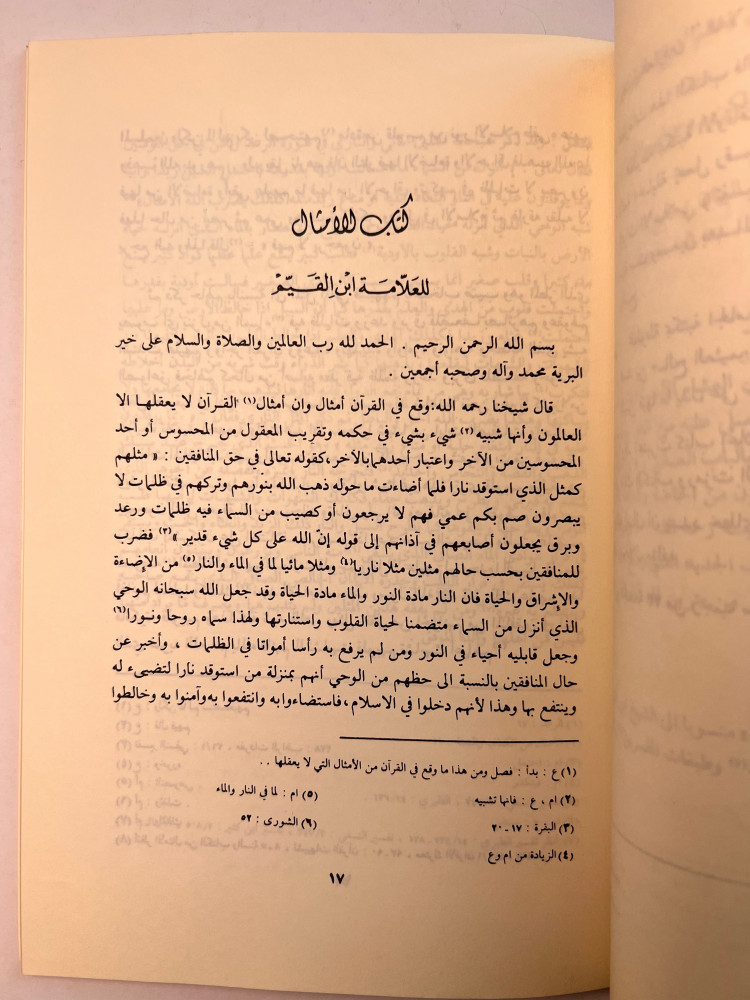 كتاب الأمثال
للعلامة ابن القيم
بسم الله الرحمن الرحيم . الحمد لله رب العالمين والصلاة والسلام على خير
البرية محمد وآله وصحبه أجمعين .
قال شيخنا رحمه الله:وقع في القرآن أمثال وان أمثال(١) القرآن لا يعقلها الا
العالمون وأنها شبيه(٢) شيء بشيء في حكمه وتقريب المعقول من المحسوس أو أحد
المحسوسين من الآخر واعتبار أحدهما بالآخر،كقوله تعالى في حق المنافقين : « مثلهم
كمثل الذي استوقد نارا فلما أضاءت ما حوله ذهب الله بنورهم وتركهم في ظلمات لا
يبصرون صم بكم عمي فهم لا يرجعون أو كصيب من السماء فيه ظلمات ورعد
وبرق يجعلون أصابعهم في آذانهم إلى قوله إنّ الله على كل شيء قدير »(٣) فضرب
للمنافقين بحسب حالهم مثلين مثلا ناريا(٤) ومثلا مائيا لما في الماء والنار(٥) من الإضاءة
والإشراق والحياة فان النار مادة النور والماء مادة الحياة وقد جعل الله سبحانه الوحي
الذي أنزل من السماء متضمنا لحياة القلوب واستنارتها ولهذا سماه روحا ونورا(٦)
وجعل قابليه أحياء في النور ومن لم يرفع به رأسا أمواتا في الظلمات ، وأخبر عن
حال المنافقين بالنسبة الى حظهم من الوحي أنهم بمنزلة من استوقد نارا لتضيىء له
وينتفع بها وهذا لأنهم دخلوا في الاسلام،فاستضاءوا به وانتفعوا به وآمنوا به وخالطوا
(١) ع : بدأ : فصل ومن هذا ما وقع في القرآن من الأمثال التي لا يعقلها . .
(٢) ام ، ع : فانها تشبيه
(٥) ام : لما في النار والماء
(٣) البقرة : ١٧-٢٠
(٦) الشورى : ٥٢
(٤) الزيادة من ام وع
١٧